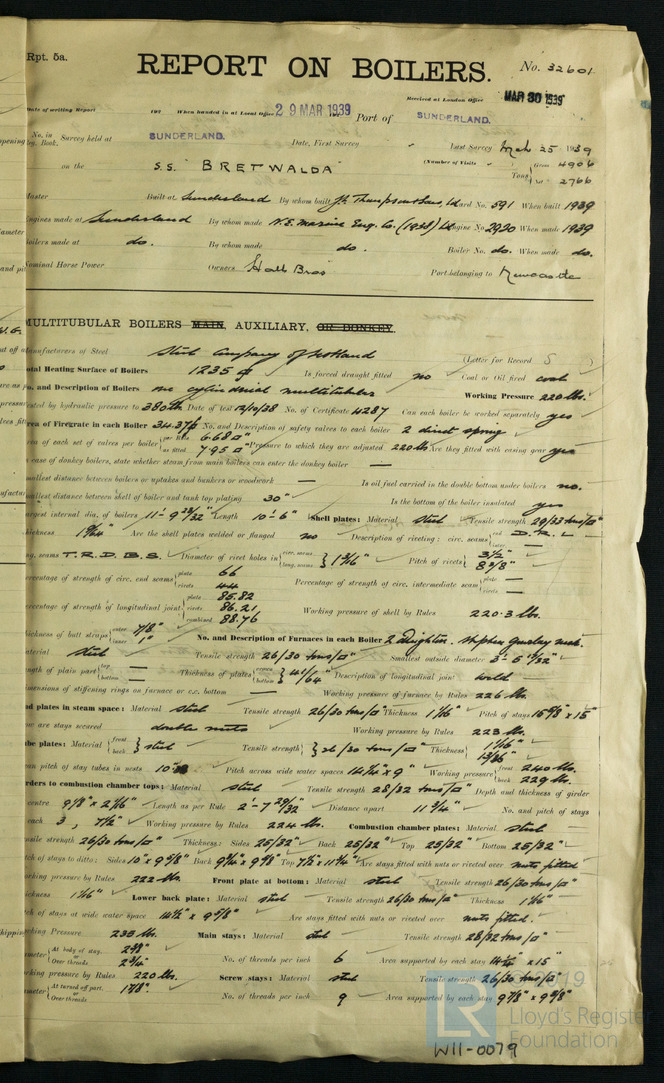 Rpt. 5a.
REPORT ON BOILERS.
No. 32601
Received at London Office
MAR 30 1939
Date of writing Report 192 When handed in at Local Office 29 MAR 1939 Port of SUNDERLAND.
No. in Survey held at SUNDERLAND. Date, First Survey Last Survey March 25 1939
Reg. Book.
on the S.S. "BRETWALDA" (Number of Visits ) Gross 4906
Tons Net 2766
Master Built at Sunderland By whom built J. Thompson & Sons, Ld Yard No. 591 When built 1939
Engines made at Sunderland By whom made N.E. Marine Eng. Co. (1938) Ld Engine No. 2920 When made 1939
Boilers made at do. By whom made do. Boiler No. do. When made do.
Nominal Horse Power Owners Hall Bros Port belonging to Newcastle
MULTITUBULAR BOILERS MAIN, AUXILIARY, OR DONKEY.
Manufacturers of Steel Steel Company of Scotland (Letter for Record S )
Total Heating Surface of Boilers 1235 Is forced draught fitted no Coal or Oil fired coal
No. and Description of Boilers one cylindrical multitubular Working Pressure 220 lbs.
Tested by hydraulic pressure to 380 lbs Date of test 12/10/38 No. of Certificate 4287 Can each boiler be worked separately yes
Area of Firegrate in each Boiler 34.37 No. and Description of safety valves to each boiler 2 direct spring
Area of each set of valves per boiler per Rule 6.68 □" as fitted 7.95 □" Pressure to which they are adjusted 220 lbs Are they fitted with easing gear yes
In case of donkey boilers, state whether steam from main boilers can enter the donkey boiler —
Smallest distance between boilers or uptakes and bunkers or woodwork — Is oil fuel carried in the double bottom under boilers no.
Smallest distance between shell of boiler and tank top plating 30" Is the bottom of the boiler insulated yes
Largest internal dia. of boilers 11'-9 23/32" Length 10'-6" Shell plates: Material steel Tensile strength 29/33 tons/□"
Thickness 19/64" Are the shell plates welded or flanged no Description of riveting: circ. seams end D.R.L inter. —
long. seams T.R.D.B.S. Diameter of rivet holes in circ. seams long. seams 1 3/16" Pitch of rivets 3 1/2" 8 3/8"
Percentage of strength of circ. end seams plate 66 rivets 44 Percentage of strength of circ. intermediate seam plate — rivets —
Percentage of strength of longitudinal joint plate 85.82 rivets 86.21 combined 88.76 Working pressure of shell by Rules 220.3 lbs.
Thickness of butt straps outer 7/8" inner 1" No. and Description of Furnaces in each Boiler 2 Deighton. Stephen Gourlay neck.
Material steel Tensile strength 26/30 tons/□" Smallest outside diameter 3'-5 9/32"
Length of plain part top — bottom — Thickness of plates crown bottom 41/64" Description of longitudinal joint weld
Dimensions of stiffening rings on furnace or c.c. bottom — Working pressure of furnace by Rules 226 lbs.
End plates in steam space: Material steel Tensile strength 26/30 tons/□" Thickness 1 1/16" Pitch of stays 15 7/8" x 15"
How are stays secured double nuts Working pressure by Rules 223 lbs.
Tube plates: Material front back steel Tensile strength 26/30 tons/□" Thickness 1 1/16" 13/16"
Mean pitch of stay tubes in nests 10" Pitch across wide water spaces 14 1/2" x 9" Working pressure front 240 lbs. back 229 lbs.
Girders to combustion chamber tops: Material steel Tensile strength 28/32 tons/□" Depth and thickness of girder
at centre 9 1/8" x 2 1/16" Length as per Rule 2'-7 29/32" Distance apart 11 3/4" No. and pitch of stays
in each 3, 7 1/2" Working pressure by Rules 224 lbs. Combustion chamber plates: Material steel
Tensile strength 26/30 tons/□" Thickness: Sides 25/32" Back 25/32" Top 25/32" Bottom 25/32"
Pitch of stays to ditto: Sides 10" x 9 5/8" Back 9 1/4" x 9 5/8" Top 7 1/2" x 11 3/4" Are stays fitted with nuts or riveted over nuts fitted
Working pressure by Rules 222 lbs. Front plate at bottom: Material steel Tensile strength 26/30 tons/□"
Thickness 1 1/16" Lower back plate: Material steel Tensile strength 26/30 tons/□" Thickness 1 1/16"
Pitch of stays at wide water space 14 1/2" x 9 5/8" Are stays fitted with nuts or riveted over nuts fitted.
Working Pressure 235 lbs. Main stays: Material steel Tensile strength 28/32 tons/□"
Diameter At body of stay, or Over threads 2 7/8" 2 3/4" No. of threads per inch 6 Area supported by each stay 14 1/4" x 15"
Working pressure by Rules 220 lbs. Screw stays: Material steel Tensile strength 26/30 tons/□"
Diameter At turned off part. or Over threads 1 7/8" No. of threads per inch 9 Area supported by each stay 9 7/8" x 9 5/8"
LR
2019
Lloyd's Register
Foundation
W11-0079